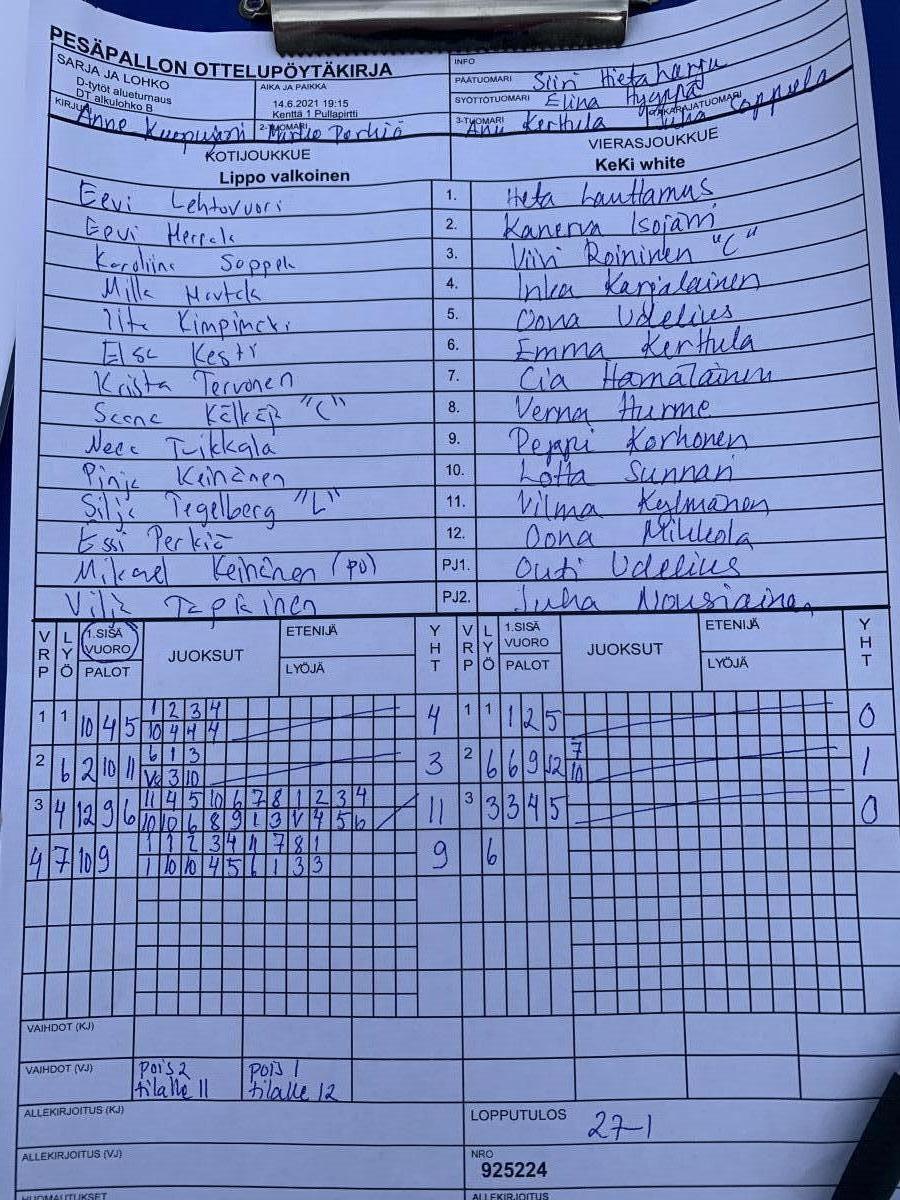 PESÄPALLON OTTELUPÖYTÄKIRJA
SARJA JA LOHKO
D-tytöt alueturnaus
DT alkulohko B
AIKA JA PAIKKA
14.6.2021 19:15
Kenttä 1 Pullapirtti
INFO
PÄÄTUOMARI Siiri Hietaharju
SYÖTTÖTUOMARI Elina
KIRJURI Anne
2-TUOMARI Marko Perkiö
3-TUOMARI Anu Kerthula
TAKARAJATUOMARI Juha Coppela
KOTIJOUKKUE
VIERASJOUKKUE
Lippo valkoinen
KeKi white
Eevi Lehtovuori 1. Heta Lauttamus
Eevi 2. Kanerva Isojämi
Karoliina Soppela 3. Viivi Roininen "C"
Milla 4. Inka Karjalainen
Iita 5. Oona Udelius
Elsa Kesti 6. Emma Kerthula
Krista Tervonen 7. Cia Hämäläinen
"C" 8. Verna Hurme
Neea Tuikkala 9. Peppi Korhonen
Pinja Keinänen 10. Lotta Sunnari
Silja Tegelberg "L" 11. Vilma Kylmänen
Essi Perkiö 12. Oona Mikkola
Mikael Keinänen (PJ) PJ1. Outi Udelius
Vilja PJ2. Juha Nousiainen
VRP LYÖ 1.SISÄ VUORO PALOT JUOKSUT ETENIJÄ LYÖJÄ YHT VRP LYÖ 1.SISÄ VUORO PALOT JUOKSUT ETENIJÄ LYÖJÄ YHT
1 1 10 4 5 1 2 3 4 4 1 1 1 2 5 0
10 4 4 4
2 6 2 10 11 6 1 3 3 2 6 6 9 12 7 1
3 10 10
3 4 12 9 6 11 4 5 10 6 7 8 1 2 3 4 11 3 3 3 4 5 0
10 10 6 8 9 1 3 V 4 5 6
4 7 10 9 1 1 2 3 4 11 7 8 1 9 6
1 10 10 4 5 6 1 3 3
VAIHDOT (KJ)
VAIHDOT (VJ) pois 2 pois 1
tilalle 11 tilalle 12
ALLEKIRJOITUS (KJ) LOPPUTULOS 27-1
ALLEKIRJOITUS (VJ) NRO
925224
HUOMAUTUKSET ALLEKIRJOITUS